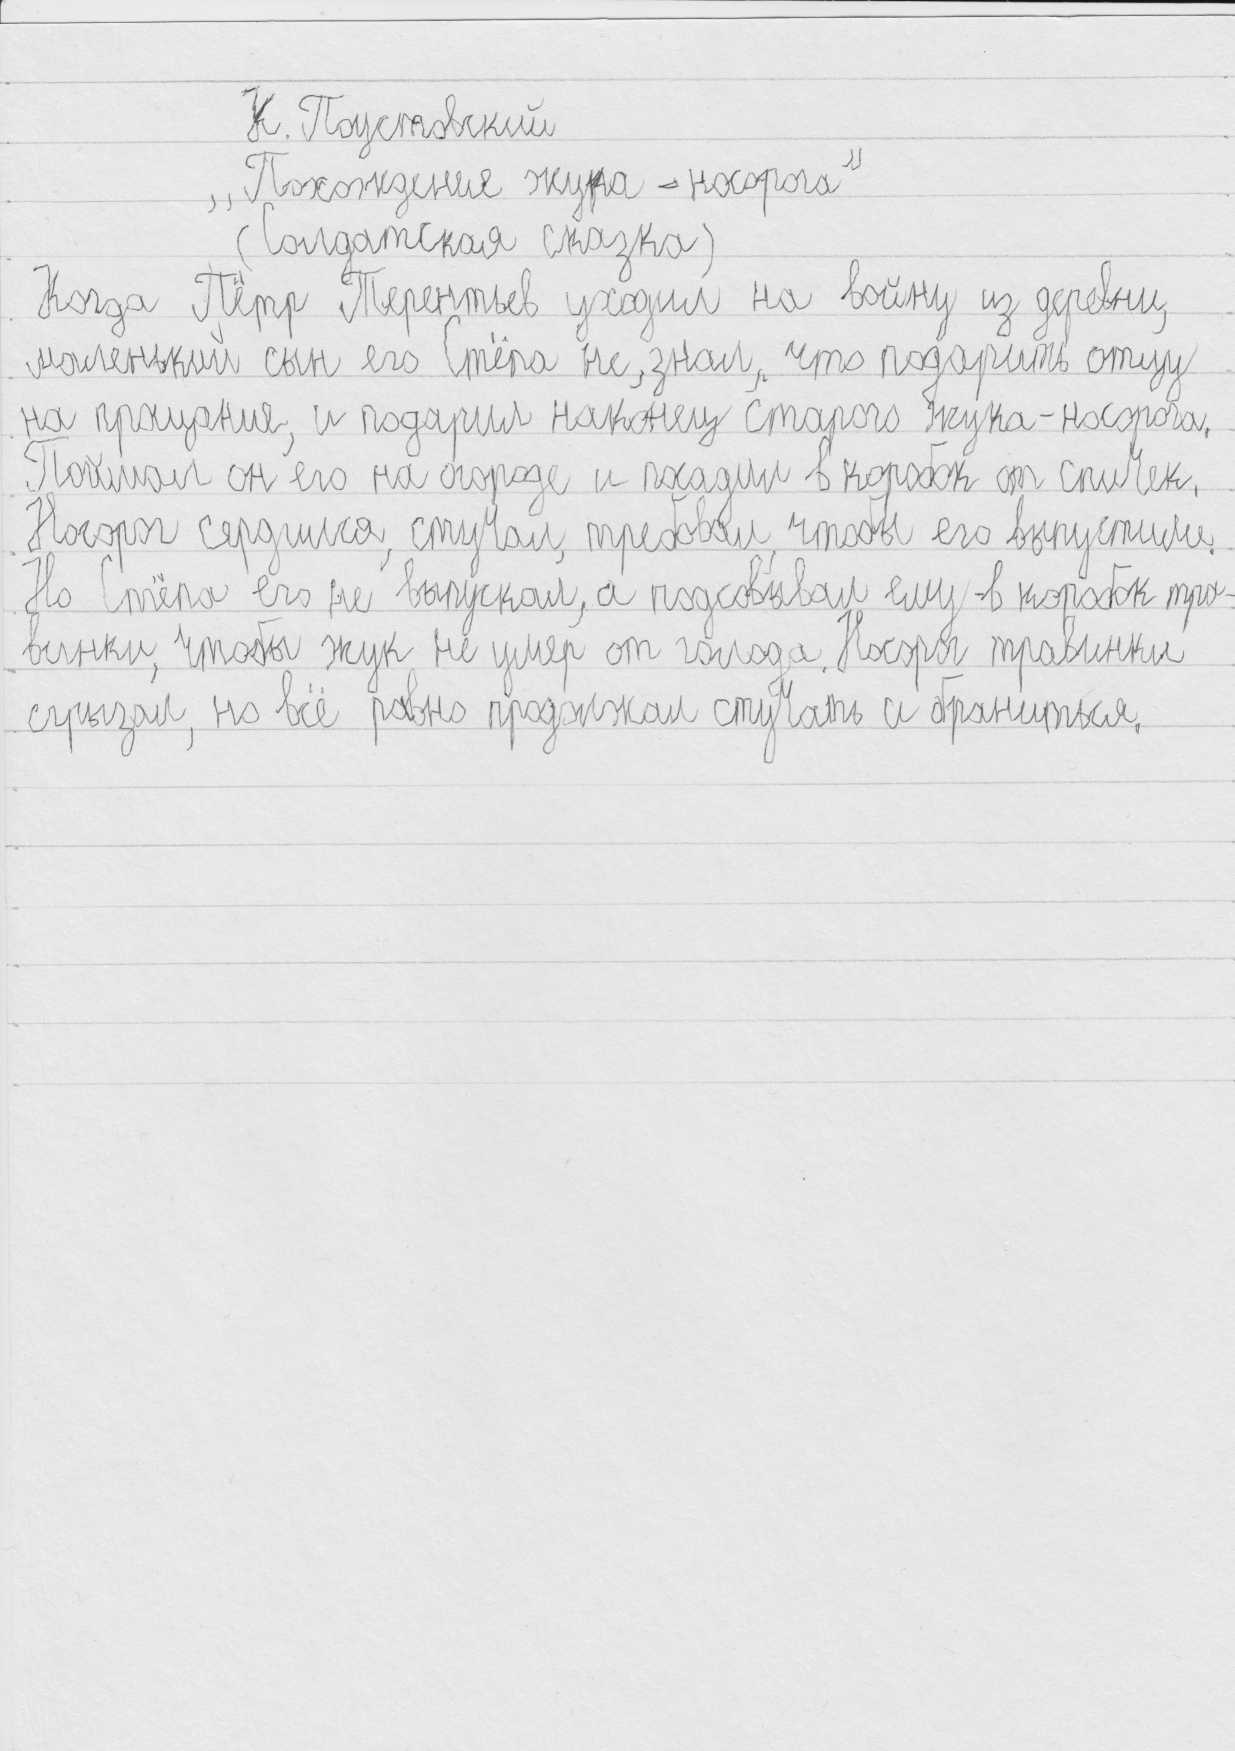 К. Паустовский
„Похождения жука-носорога"
(Солдатская сказка)
Когда Пётр Терентьев уходил на войну из деревни,
маленький сын его Стёпа не, знал, что подарить отцу
на прощание, и подарил наконец старого жука-носорога.
Поймал он его на огороде и посадил в коробок от спичек.
Носорог сердился, стучал, требовал, чтобы его выпустили.
Но Стёпа его не выпускал, а подсовывал ему в коробок тра-
винки, чтобы жук не умер от голода. Носорог травинки
сгрызал, но всё равно продолжал стучать и браниться.